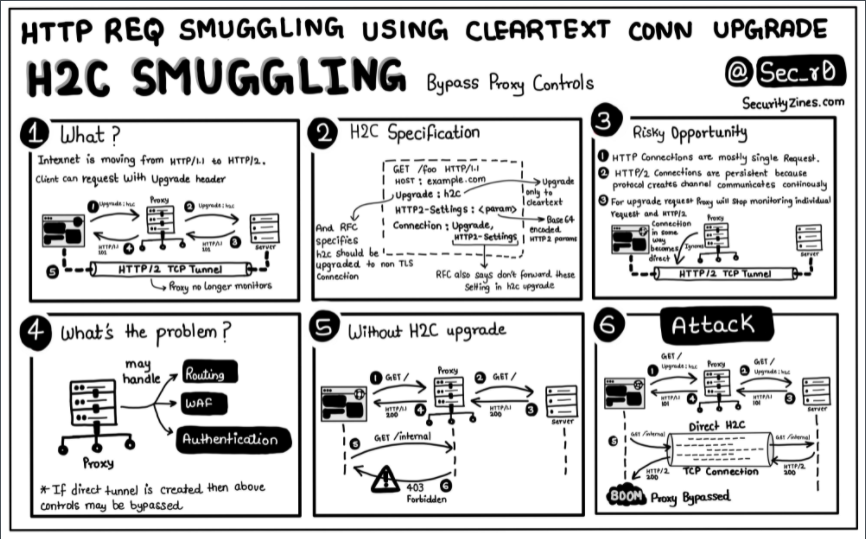 HTTP REQ SMUGGLING USING CLEARTEXT CONN UPGRADE
H2C SMUGGLING Bypass Proxy Controls
@Sec_r0
SecurityZines.com
1 What?
Internet is moving from HTTP/1.1 to HTTP/2.
Client can request with Upgrade header
1 Upgrade: h2c
Proxy
2 Upgrade: h2c
HTTP/1.1
101
4
HTTP/1.1
101
3
Server
5
HTTP/2 TCP Tunnel
Proxy no longer monitors
2 H2C Specification
GET /foo HTTP/1.1
HOST: example.com
Upgrade: h2c
HTTP2-Settings: <param>
Connection: Upgrade,
HTTP2-Settings
Upgrade
only to
cleartext
Base64
encoded
HTTP2 params
And RFC
specifies
h2c should be
upgraded to non TLS
Connection
RFC also says don't forward these
Setting in h2c upgrade
3 Risky Opportunity
1 HTTP Connections are mostly Single Request.
2 HTTP/2 Connections are persistent because
protocol creates channel communicates continously
3 For upgrade request Proxy will Stop monitoring individual
request and HTTP/2
Connection
in some
way
becomes
direct
Proxy
Tunnel
Server
HTTP/2 TCP Tunnel
4 What's the problem?
may
handle
Routing
WAF
Authentication
Proxy
* If direct tunnel is created then above
controls may be bypassed
5 Without H2C upgrade
1 GET /
Proxy
2 GET /
HTTP/1.1
200
4
HTTP/1.1
200
3
Server
5
GET /internal
403
Forbidden
6
6 Attack
GET /
1 Upgrade: h2c
Proxy
GET /
2 Upgrade: h2c
HTTP/1.1
101
4
HTTP/1.1
101
3
Server
Direct H2C
5
GET /internal
GET /internal
HTTP/2
200
HTTP/2
200
TCP Connection
BOOM Proxy Bypassed